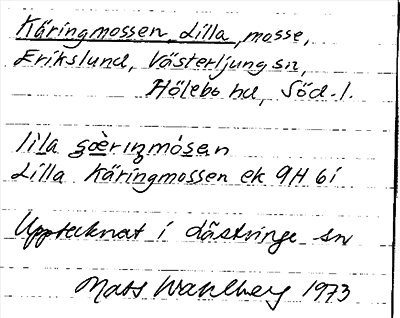 Käringmossen, Lilla, mosse,
Erikslund, Västerljung sn,
Hölebo hd, Söd. l.
lila çæ̀rıŋmósen
Lilla Käringmossen ek 9H 6i
Upptecknat i Lästringe sn
Mats Wahlberg 1973